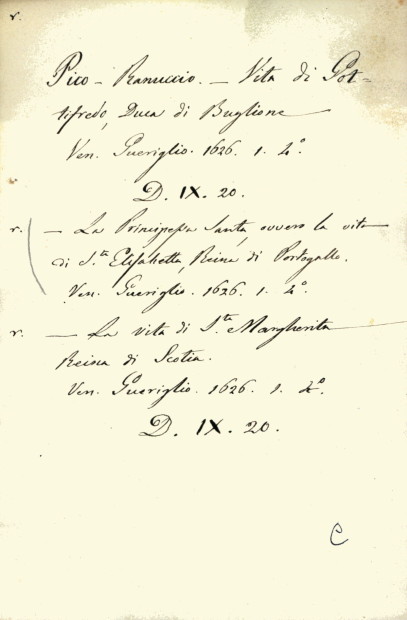 r.
Pico - Ranuccio. - Vita di Got-
tifredo, Duca di Buglione
Ven. Gueriglio. 1626. 1. 4.°
D. IX. 20.
r. - La Principessa Santa, ovvero la vita
di S.ta Elisabetta, Reina di Portogallo.
Ven. Gueriglio. 1626. 1. 4.°
r. - La vita di S.ta Margherita
Reina di Scotia.
Ven. Gueriglio. 1626. 1. 4.°
D. IX. 20.
C